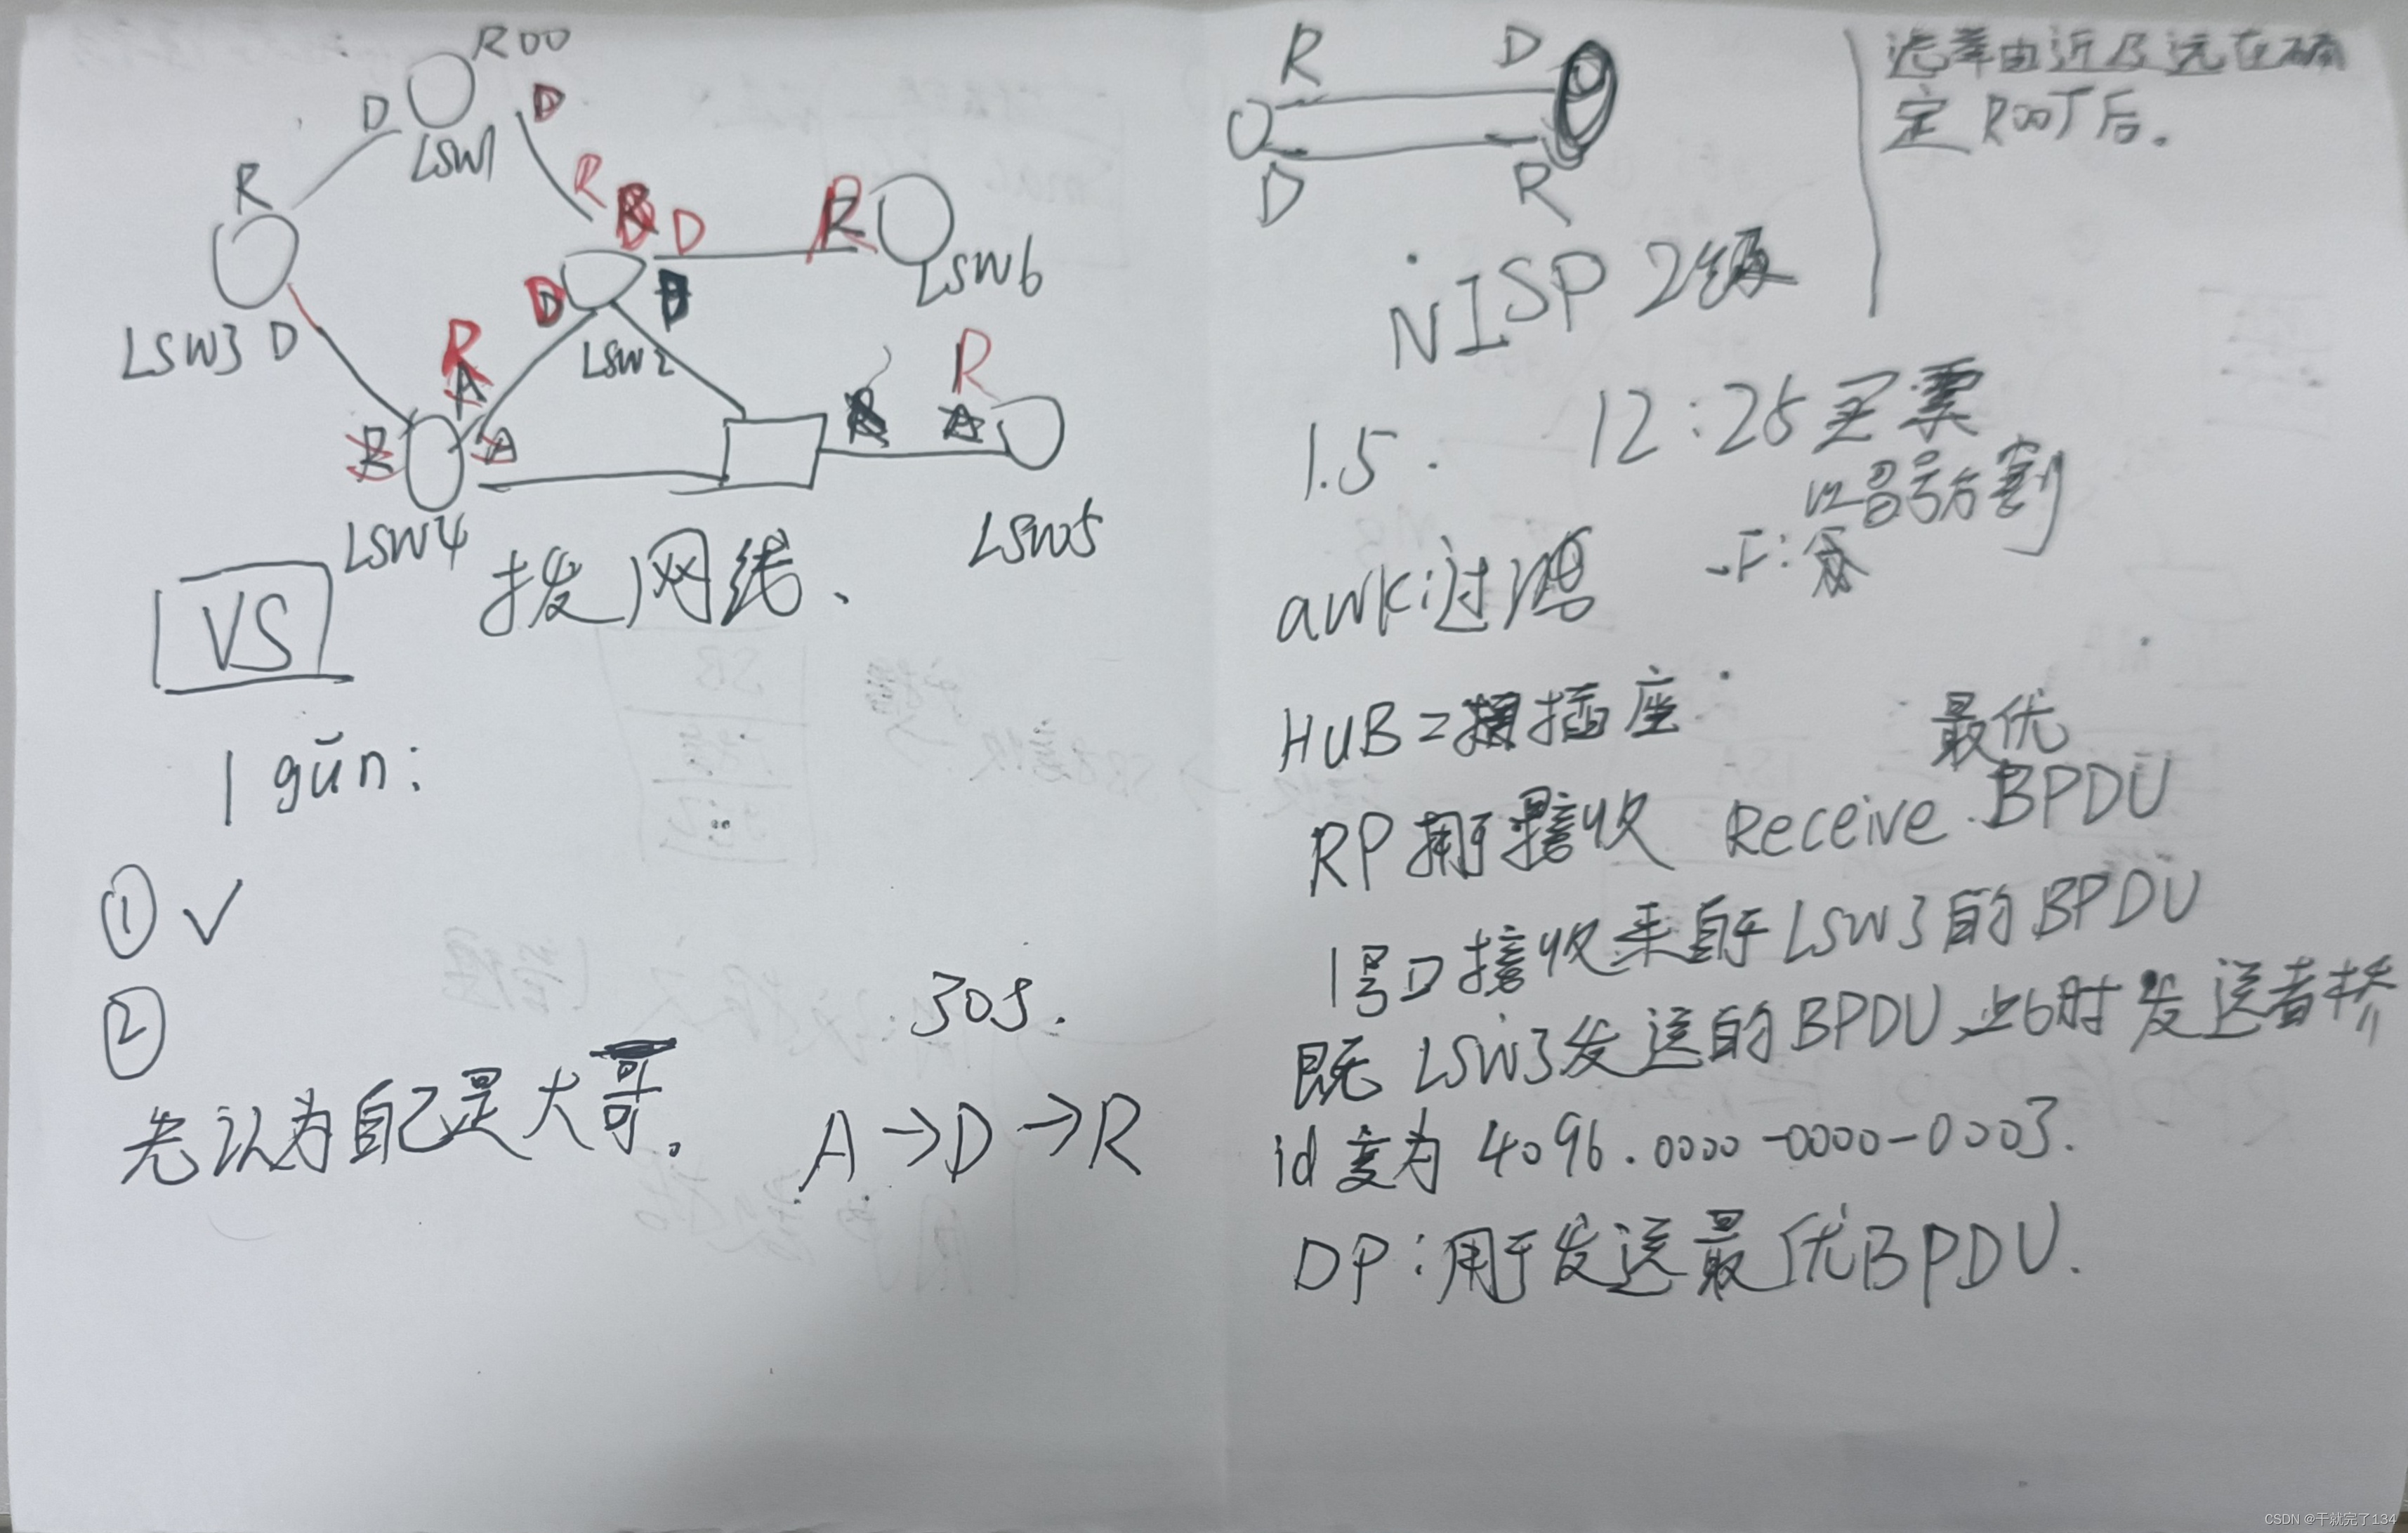 R00
D
LSW1
D
R
R
D
R
LSW6
LSW3 D
R
A
D
LSW2
R
R
A
LSW4
LSW5
拨网线、
VS
1 gŭn:
① ✓
②
30s.
先认为自己是大哥。
A→D→R
R D
D R
选举由近及远在确
定 ROOT后.
NISP 2级
1.5. 12:25买票
以冒号分割
awk:过滤 -F:
HUB=插座
最优
RP 用于接收 Receive BPDU
1号口接收来自于LSW3的BPDU
既 LSW3发送的BPDU 此时发送者桥
id 变为 4096.0000-0000-0003.
DP:用于发送最优BPDU.
CSDN @干就完了134